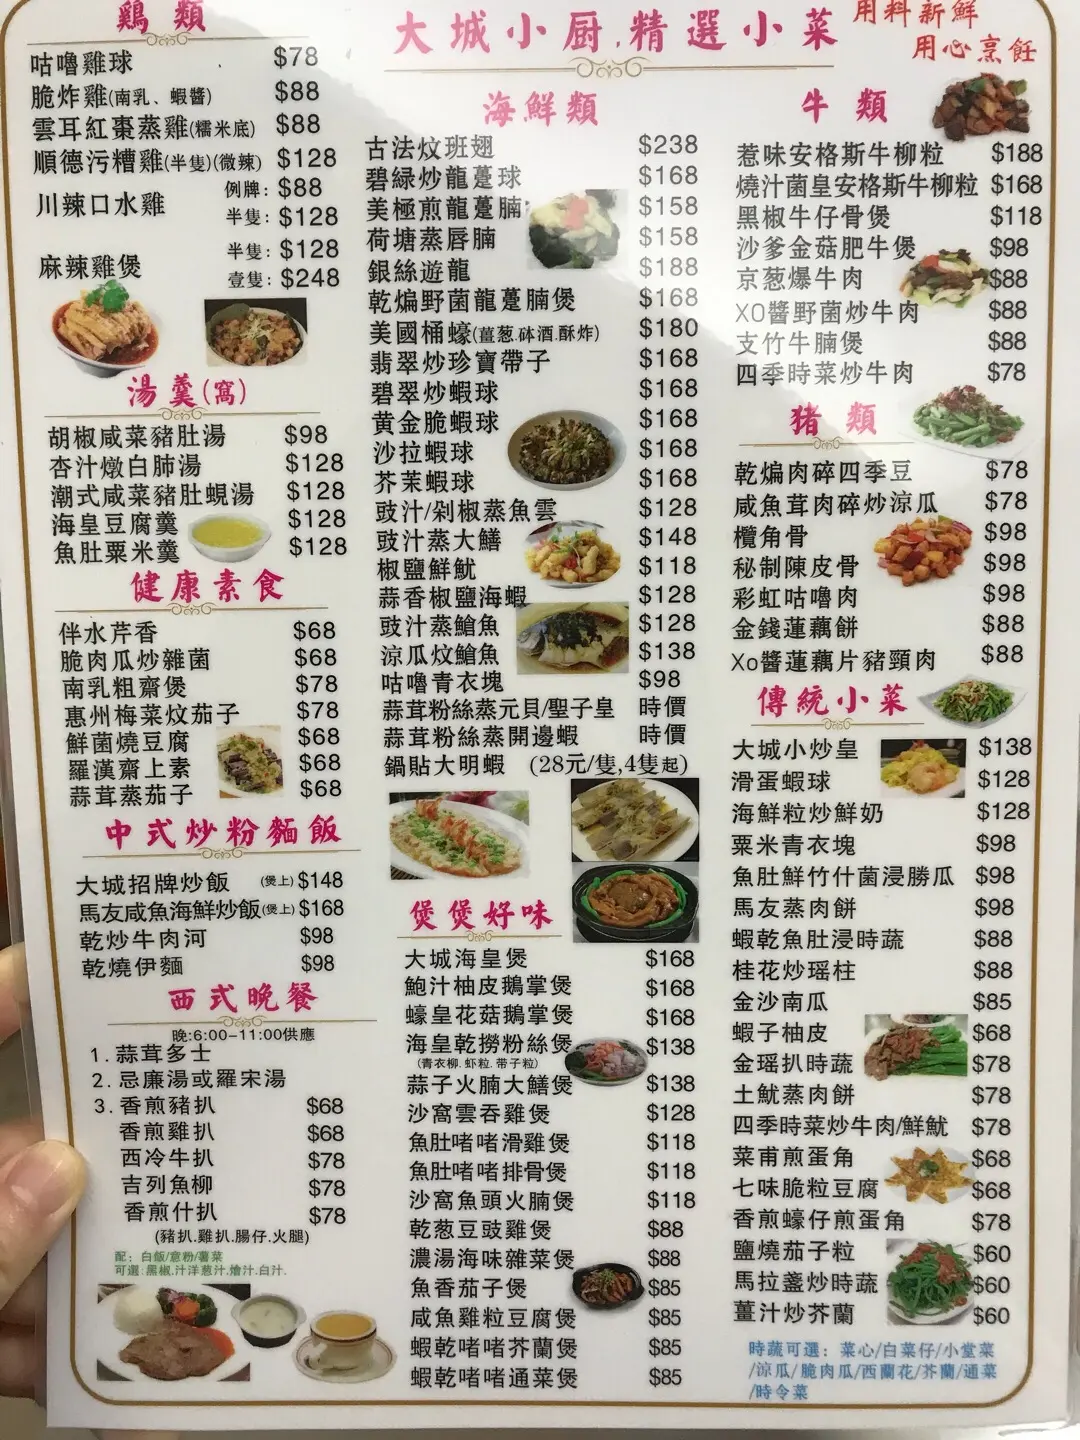 大城小厨.精選小菜
用料新鮮
用心烹飪
鷄類
咕嚕雞球 $78
脆炸雞(南乳、蝦醬) $88
雲耳紅棗蒸雞(糯米底) $88
順德污糟雞(半隻)(微辣) $128
川辣口水雞 例牌: $88
半隻: $128
麻辣雞煲 半隻: $128
壹隻: $248
湯羹(窩)
胡椒咸菜豬肚湯 $98
杏汁燉白肺湯 $128
潮式咸菜豬肚蜆湯 $128
海皇豆腐羹 $128
魚肚粟米羹 $128
健康素食
伴水芹香 $68
脆肉瓜炒雜菌 $68
南乳粗齋煲 $78
惠州梅菜炆茄子 $78
鮮菌燒豆腐 $68
羅漢齋上素 $68
蒜茸蒸茄子 $68
中式炒粉麵飯
大城招牌炒飯 (煲上) $148
馬友咸魚海鮮炒飯(煲上) $168
乾炒牛肉河 $98
乾燒伊麵 $98
西式晚餐
晚:6:00-11:00供應
1.蒜茸多士
2.忌廉湯或羅宋湯
3.香煎豬扒 $68
香煎雞扒 $68
西冷牛扒 $78
吉列魚柳 $78
香煎什扒 $78
(豬扒.雞扒.腸仔.火腿)
配：白飯/意粉/薯菜
可選:黑椒.汁洋葱汁.燴汁.白汁.
海鮮類
古法炆班翅 $238
碧綠炒龍躉球 $168
美極煎龍躉腩 $158
荷塘蒸唇腩 $158
銀絲遊龍 $188
乾煸野菌龍躉腩煲 $168
美國桶蠔(薑葱.砵酒.酥炸) $180
翡翠炒珍寶帶子 $168
碧翠炒蝦球 $168
黄金脆蝦球 $168
沙拉蝦球 $168
芥茉蝦球 $168
豉汁/剁椒蒸魚雲 $128
豉汁蒸大鱔 $148
椒鹽鮮魷 $118
蒜香椒鹽海蝦 $128
豉汁蒸鯧魚 $128
涼瓜炆鯧魚 $138
咕嚕青衣塊 $98
蒜茸粉絲蒸元貝/聖子皇 時價
蒜茸粉絲蒸開邊蝦 時價
鍋貼大明蝦 (28元/隻,4隻起)
煲煲好味
大城海皇煲 $168
鮑汁柚皮鵝掌煲 $168
蠔皇花菇鵝掌煲 $168
海皇乾撈粉絲煲 $138
(青衣柳.虾粒.带子粒)
蒜子火腩大鱔煲 $138
沙窩雲吞雞煲 $128
魚肚啫啫滑雞煲 $118
魚肚啫啫排骨煲 $118
沙窩魚頭火腩煲 $118
乾葱豆豉雞煲 $88
濃湯海味雜菜煲 $88
魚香茄子煲 $85
咸魚雞粒豆腐煲 $85
蝦乾啫啫芥蘭煲 $85
蝦乾啫啫通菜煲 $85
牛類
惹味安格斯牛柳粒 $188
燒汁菌皇安格斯牛柳粒 $168
黑椒牛仔骨煲 $118
沙爹金菇肥牛煲 $98
京葱爆牛肉 $88
XO醬野菌炒牛肉 $88
支竹牛腩煲 $88
四季時菜炒牛肉 $78
猪類
乾煸肉碎四季豆 $78
咸魚茸肉碎炒涼瓜 $78
欖角骨 $98
秘制陳皮骨 $98
彩虹咕嚕肉 $98
金錢蓮藕餅 $88
Xo醬蓮藕片豬頸肉 $88
傳統小菜
大城小炒皇 $138
滑蛋蝦球 $128
海鮮粒炒鮮奶 $128
粟米青衣塊 $98
魚肚鮮竹什菌浸勝瓜 $98
馬友蒸肉餅 $98
蝦乾魚肚浸時蔬 $88
桂花炒瑶柱 $88
金沙南瓜 $85
蝦子柚皮 $68
金瑶扒時蔬 $78
土魷蒸肉餅 $78
四季時菜炒牛肉/鮮魷 $78
菜甫煎蛋角 $68
七味脆粒豆腐 $68
香煎蠔仔煎蛋角 $78
鹽燒茄子粒 $60
馬拉盞炒時蔬 $60
薑汁炒芥蘭 $60
時蔬可選：菜心/白菜仔/小堂菜
/涼瓜/脆肉瓜/西蘭花/芥蘭/通菜
/時令菜